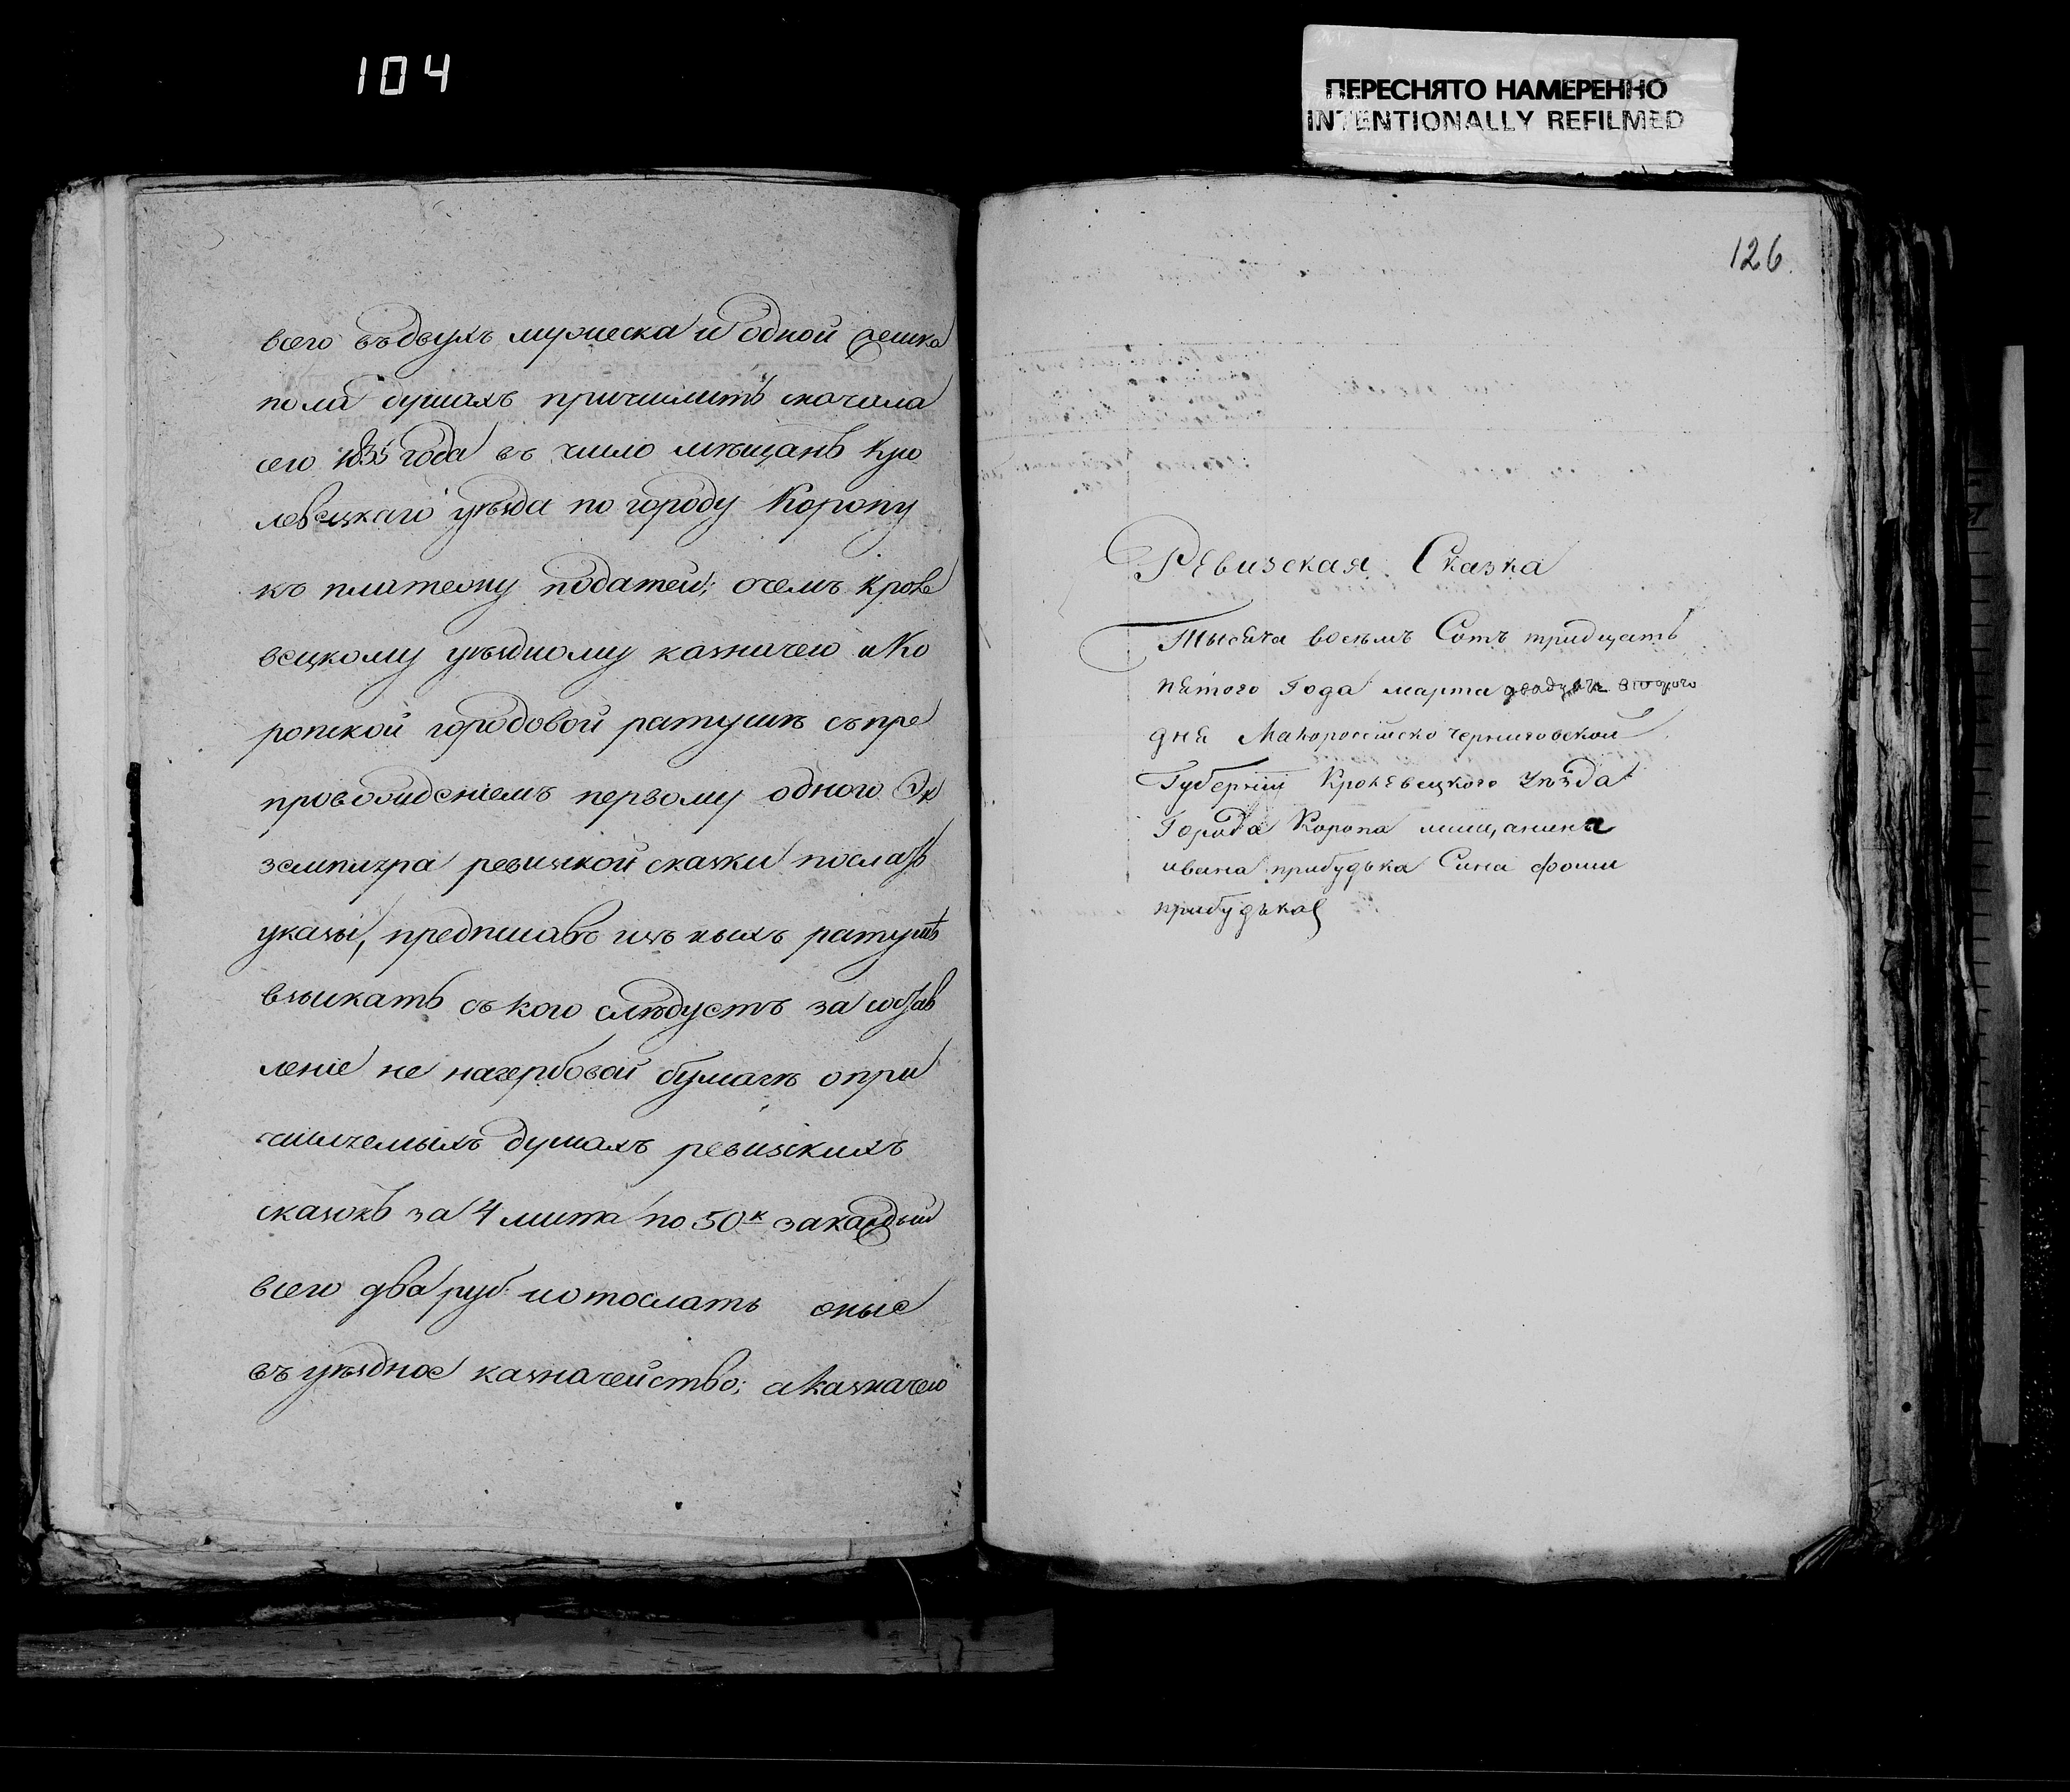 104
ПЕРЕСНЯТО НАМЕРЕННО
INTENTIONALLY REFILMED
всего въ двухъ мужеска и одной женска
пола душахъ причислить сначала
сего 1835 года въ число мѣщанъ Кро
левецкаго уѣзда по городу Коропу
къ платежу податей; о чемъ Кроле
вецкому уѣздному казначею и Ко
ропской городовой ратушѣ съ пре
провожденіемъ первому одного Эк
земпляра ревизской сказки послать
указы, предписавъ изъ ныхъ ратушѣ
взыскать съ кого слѣдуетъ за состав
леніе не на гербовой бумагѣ о при
числяемыхъ душахъ ревизскихъ
сказокъ за 4 листа по 50 к за каждый
всего два руб. и отослать оные
въ уѣздное казначейство; а казначею
126.
Ревизская Сказка
Тысяча восемъ Сотъ тридцать
пятого Года марта двадцать второго
дня Малороссійско Черниговской
Губерніи Кролевецкого Уѣзда
Города Коропа мищанина
ивана прибудька Сина фоми
прибудька